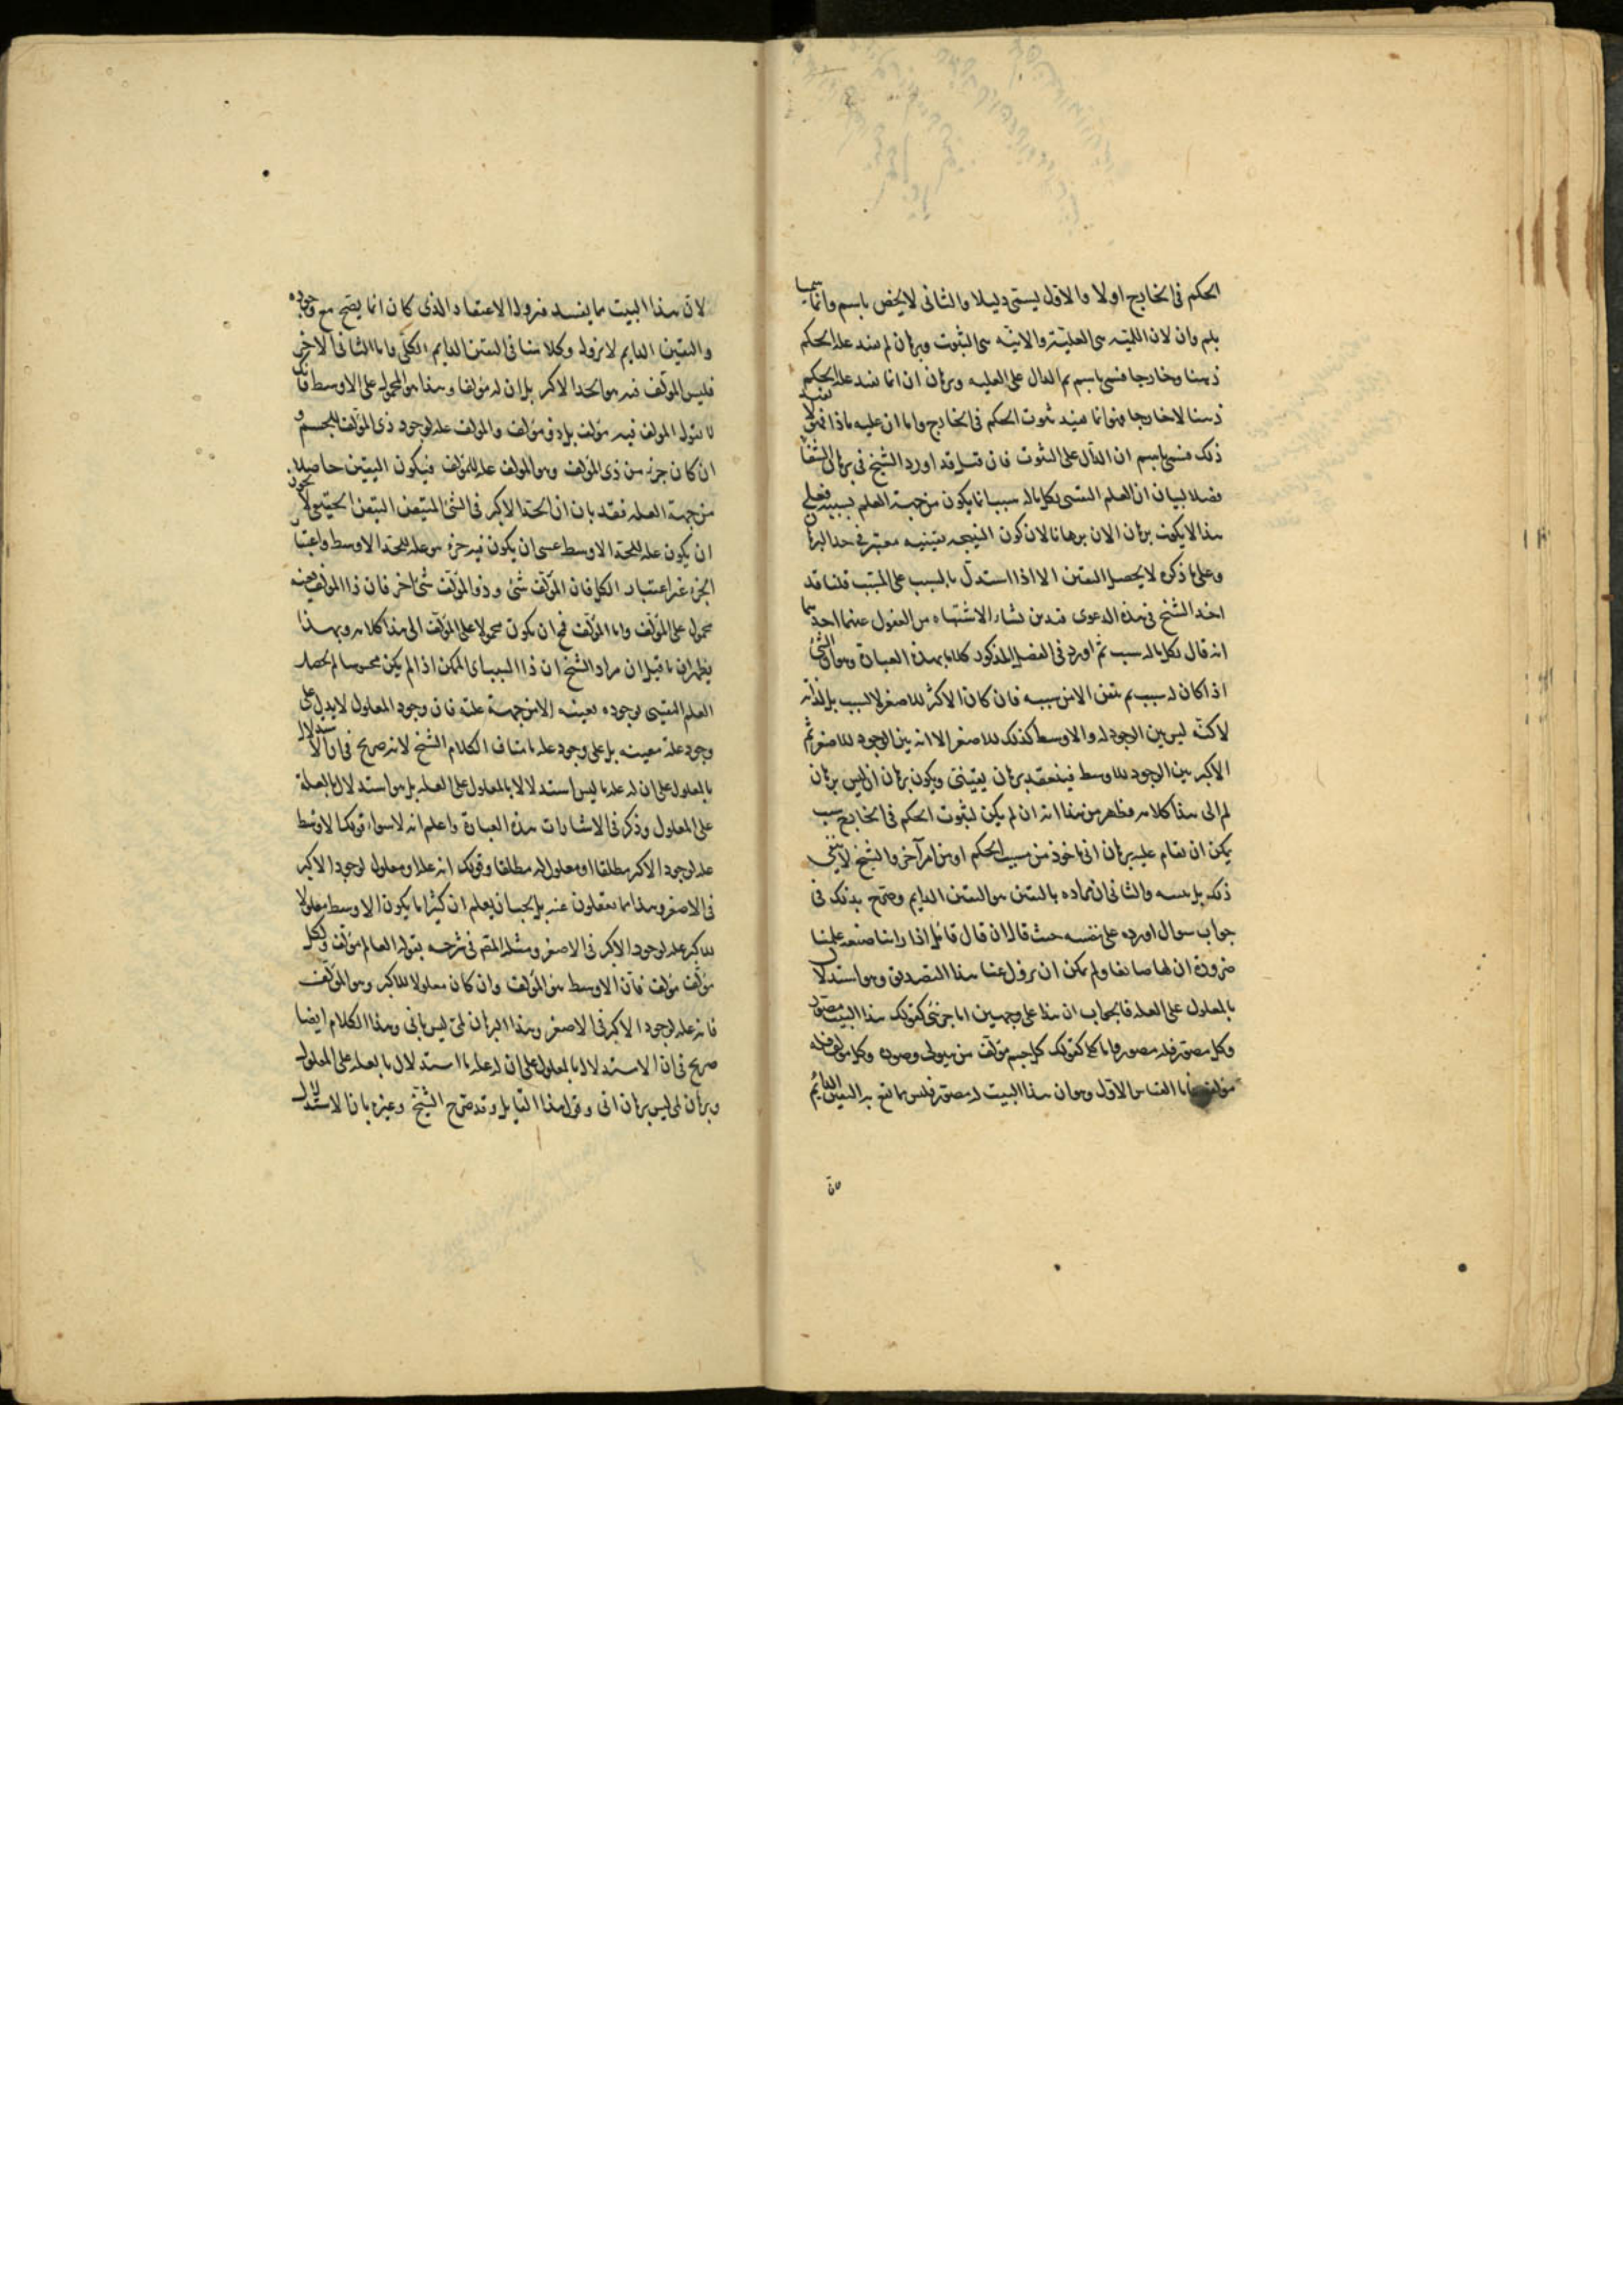 الحكم فى الخارج اولا والاول يسمى دليلا والثانى لا يخص باسم وانما سميا
بلم وان لان اللمية هى العلية والانية هى الثبوت وبرهان لم يفيد علة الحكم
ذهنا وخارجا فسمى باسم لم الدال على العلية وبرهان ان انما يفيد علة الحكم
ذهنا لا خارجا فهو انما يفيد ثبوت الحكم فى الخارج واما ان عليه ماذا فهو لا يفيد
ذلك فسمى باسم ان الدال على الثبوت فان قيل قد اورد الشيخ فى برهان الشفا
فصلا لبيان ان العلم اليقينى بكل ماله سبب انما يكون من جهة العلم بسببه فعلى
هذا لا يكون برهان الان برهانا لان كون النتيجة يقينية معتبر فى حد البرهان
وعلى ما ذكره لا يحصل اليقين الا اذا استدل بالسبب على المسبب قلنا قد
اخذ الشيخ فى هذه الدعوى قيدين نشأ الاشتباه من الغفول عنهما احدهما
انه قال بكل ماله سبب ثم اورد فى الفصل المذكور كلاما بهذه العبارة وهو ان الشئ
اذا كان له سبب لم يتيقن الا من سببه فان كان الاكبر للاصغر لا لسبب بل لذاته
لاكنه ليس بين الوجود له والاوسط كذلك للاصغر الا انه بين الوجود للاصغر ثم
الاكبر بين الوجود للاوسط فينعقد برهان يقينى ويكون برهان ان ليس برهان
لم الى هذا كلامه فظهر من هذا انه ان لم يكن لثبوت الحكم فى الخارج سبب
يمكن ان يقام عليه برهان انى ماخوذ من سبب الحكم او من امر آخر والشيخ لا ينفى
ذلك بل يثبته والثانى ان مراده باليقين هو اليقين الدايم وصرح بذلك فى
جواب سوال اورده على نفسه حيث قال ان قال قائل اذا راينا صنعة علمنا
ضرورة ان لها صانعا ولم يمكن ان يزول عنا هذا التصديق وهو استدلال
بالمعلول على العلة فالجواب ان هذا على وجهين اما جزئى كقولك هذا البيت مصور
وكل مصور فله مصور واما كلى كقولك كل جسم مؤلف من هيولى وصورة وكل مؤلف فله
مؤلف فاما القياس الاول وهو ان هذا البيت له مصور فليس مما يقع به اليقين الدايم
لان هذا البيت مما يفسد فيزول الاعتقاد الذى كان انما يصح مع وجوده
واليقين الدايم لا يزول وكلامنا فى اليقين الدايم الكلى واما المثال الاخر
فليس المؤلف فيه هو الحد الاكبر بل ان له مؤلفا وهذا هو المحمول على الاوسط فانك
لا تقول المولف فيه مؤلف بل ذو مؤلف والمولف علة لوجود ذى المؤلف للجسم و
ان كان جزء من ذى المؤلف وهو المولف علة للمؤلف فيكون اليقين حاصلا
من جهة العلة فقد بان ان الحد الاكبر فى الشئ المتيقن اليقين الحقيقى لا يجوز
ان يكون علة للحد الاوسط عسى ان يكون فيه جزء هو علة للحد الاوسط واعتبار
الجزء غير اعتبار الكل فان المؤلف شئ وذو المؤلف شئ اخر فان ذا المولف بعينه
محمول على المؤلف واما المؤلف فمح ان يكون محمولا على المؤلف الى هذا كلامه وبهذا
يظهر ان ما قيل ان مراد الشيخ ان ذا السبب اى الممكن اذا لم يكن محسوسا لم يحصل
العلم اليقينى بوجوده بعينه الا من جهة علته فان وجود المعلول لا يدل على
وجود علة معينة بل على وجود علة ما مناف لكلام الشيخ لانه صريح فى ان الاستدلال
بالمعلول على ان له علة ما ليس استدلالا بالمعلول على العلة بل هو استدلال بالعلة
على المعلول وذكر فى الاشارات بهذه العبارة واعلم انه لا سواء قولك الاوسط
علة لوجود الاكبر مطلقا او معلول له مطلقا وقولك انه علة او معلول لوجود الاكبر
فى الاصغر وهذا مما يغفلون عنه بل يجب ان يعلم ان كثيرا ما يكون الاوسط معلولا
للاكبر علة لوجود الاكبر فى الاصغر ومثله المقم فى شرحه بقوله العالم مؤلف ولكل
مؤلف مؤلف فان الاوسط هو المؤلف وان كان معلولا للاكبر وهو المؤلف
فانه علة لوجود الاكبر فى الاصغر وهذا البرهان لمى ليس بانى وهذا الكلام ايضا
صريح فى ان الاستدلال بالمعلول على ان له علة ما استدلال بالعلة على المعلول
وبرهان لمى ليس برهان انى وقول هذا القايل وقد صرح الشيخ وغيره بان الاستدلال